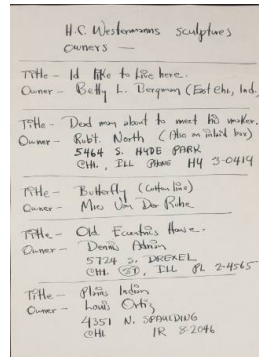 H.C. Westermanns sculptures
owners —
Title - Id like to live here.
Owner - Betty L. Bergman (East Chi, Ind.
Title - Dead man about to meet his maker.
Owner - Robt. North (Also an inlaid box)
5464 S. HYDE PARK
CHI., ILL PHONE HY 3-0414
Title - Butterfly
Owner - Mies Van Der Rohe
Title - Old Eccentrics House.
Owner - Dennis Adrian
5724 S. DREXEL
CHI. 37, ILL PL 2-4565
Title - Plains Indian
Owner - Louis Ortiz
4351 N. SPAULDING
CHI. IR 8-2046